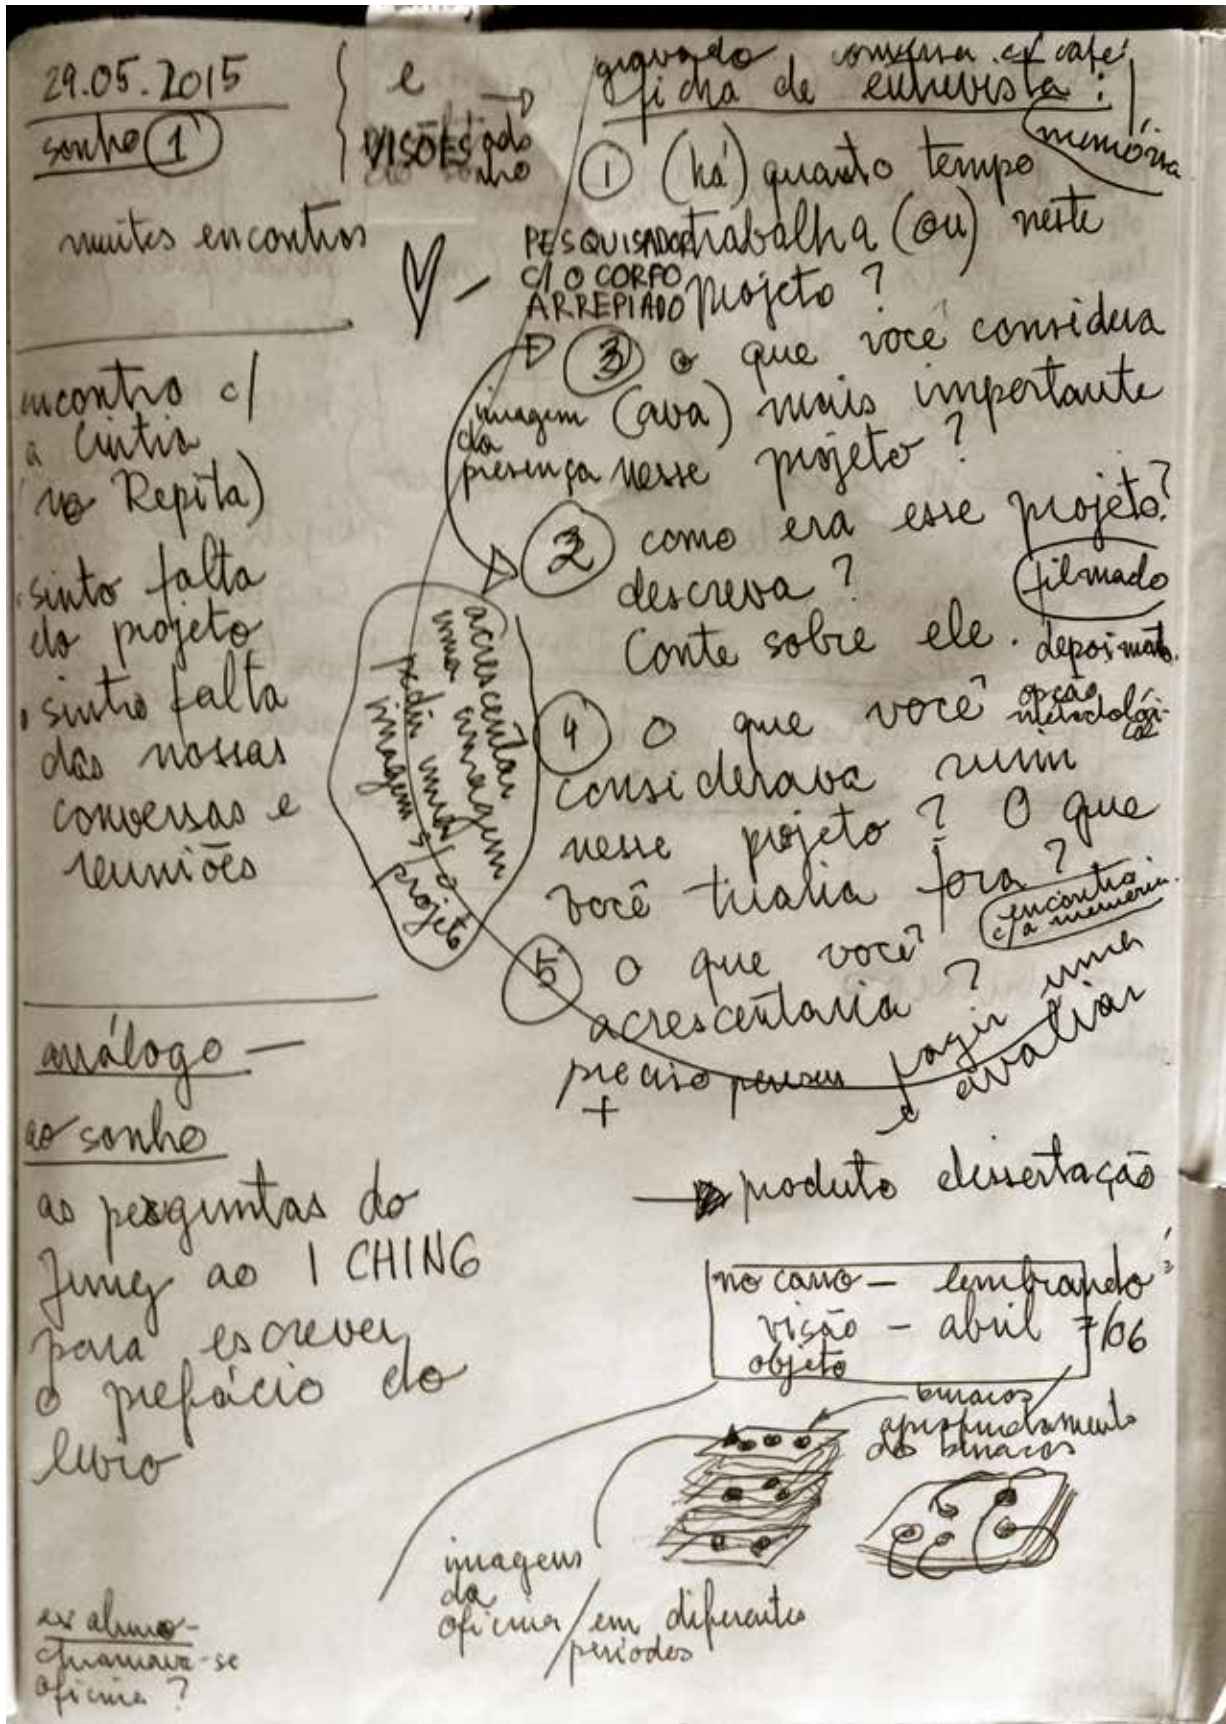 29.05.2015
sonho 1
e
VISÕES
muitos encontros
encontro c/
a Cintia
no Repita)
. sinto falta
do projeto
. sinto falta
das nossas
conversas e
reuniões
análogo —
ao sonho
as perguntas do
Jung ao I CHING
para escrever
o prefácio do
livro
ex aluno -
chamava-se
oficina ?
gravado conversa c/ café
ficha de entrevista :
memória
1 (há) quanto tempo
trabalha (ou) neste
projeto ?
PESQUISADOR
C/ O CORPO
ARREPIADO
3 o que você considera
(ava) mais importante
nesse projeto ?
imagem
da
presença
2 como era esse projeto?
descreva ?
Conte sobre ele .
filmado
depoimento.
opção
metodológi-
ca
acrescentar
uma imagem
pedir uma
imagem s/ o
projeto
4 O que você
considerava ruim
nesse projeto ? O que
você tiraria fora ?
encontro
c/ a memória.
5 O que você
acrescentaria ?
preciso pensar
+
agir uma
e avaliar
produto dissertação
no carro — lembrando
visão — abril 7/06
objeto
buracos
aprofundamento
do buracos
imagens
da
oficina / em diferentes
períodos